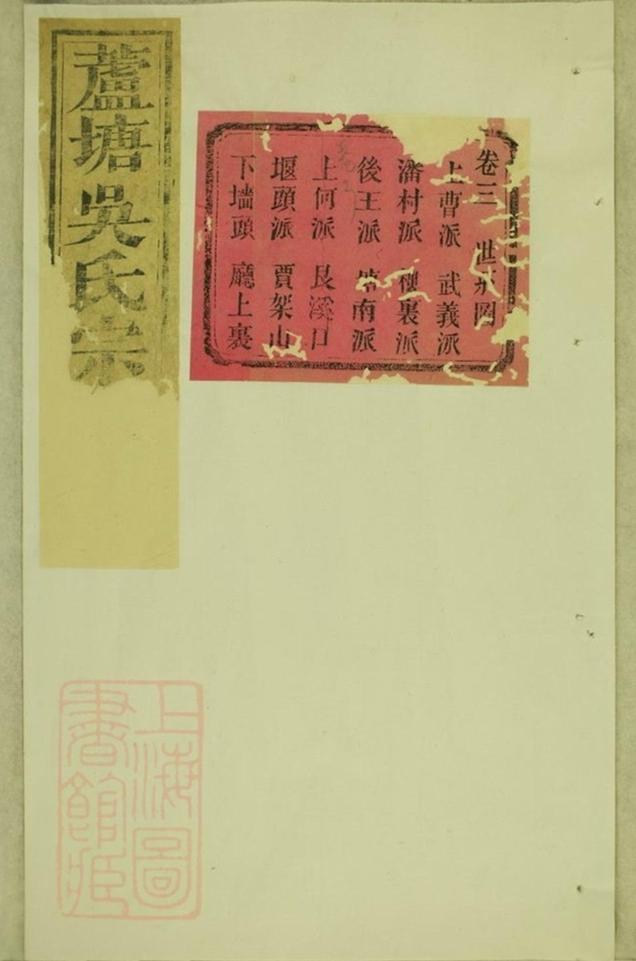 蘆塘吳氏宗
卷三 世系圖
上曹派 武義派
潘村派 裏派
後王派 南派
上何派 艮溪口
堰頭派 賈架山
下墻頭 廳上裏
上海圖
書館藏